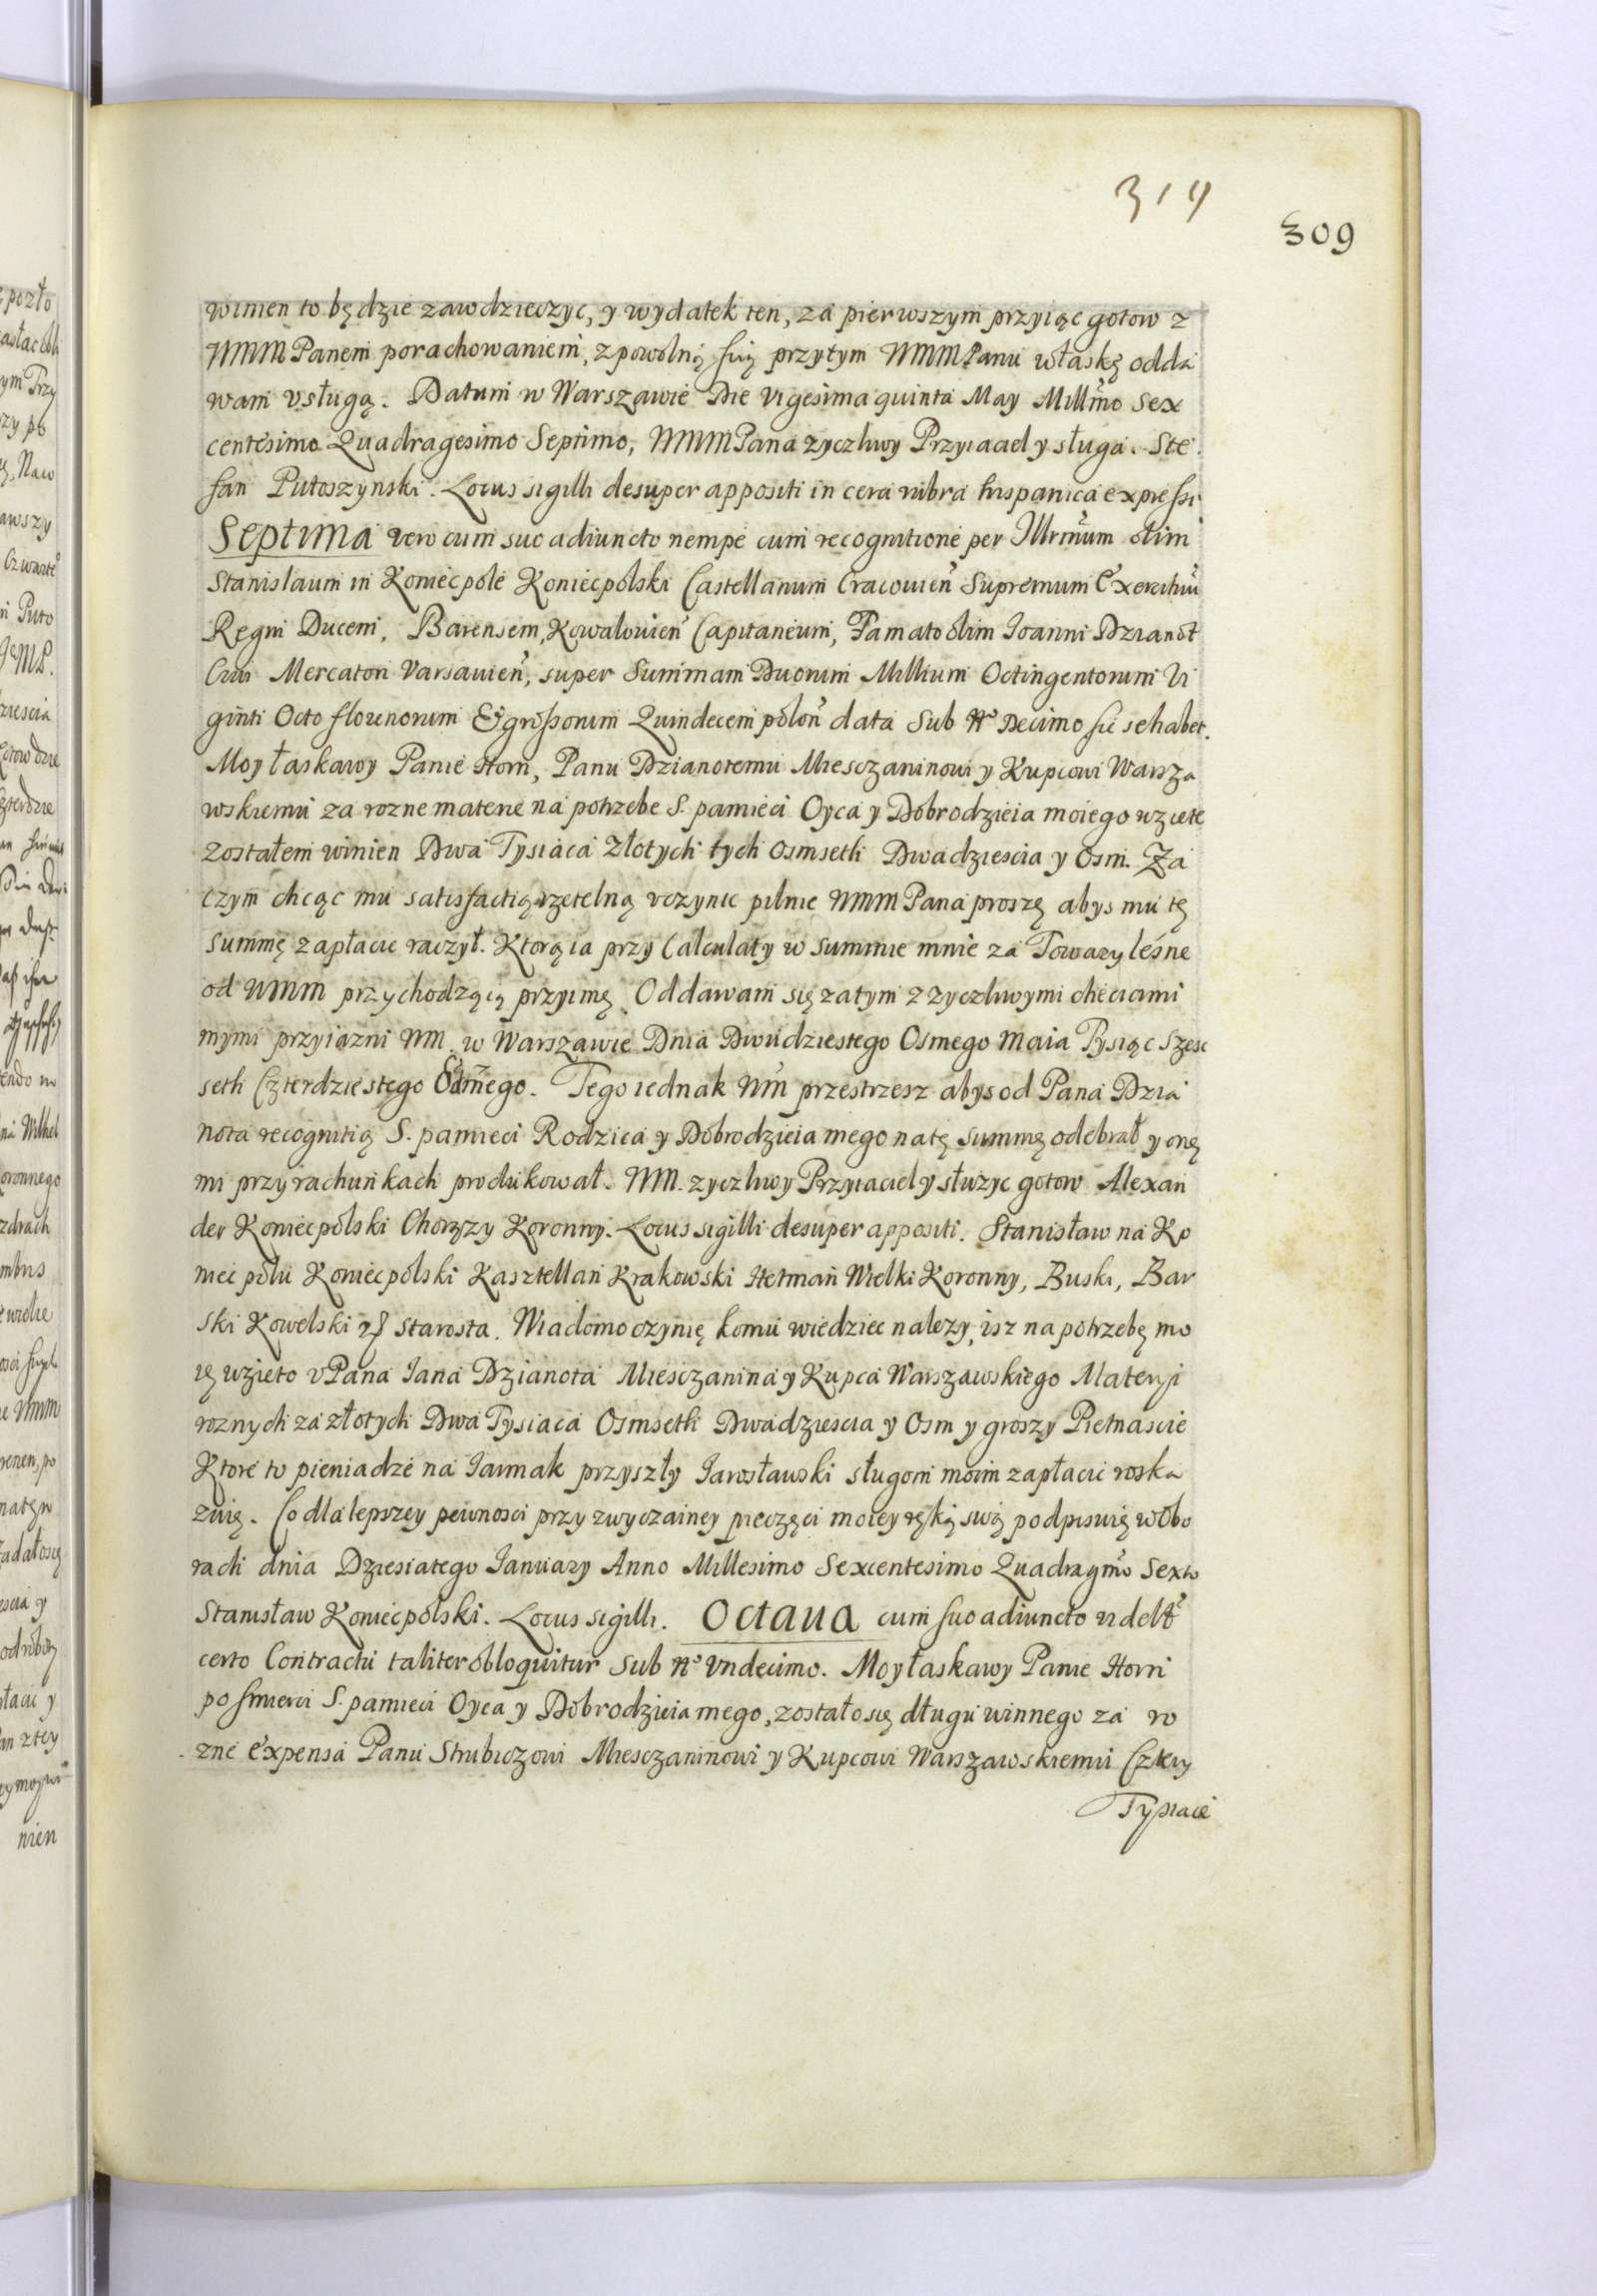 314
309
winien to będzie zawdzieczyc, y wydatek ten, za pierwszym przyiąc gotow z
WMM Panem porachowaniem, z powolną swą przytym WMM Panu właskę odda
wam vsługą. Datum w Warszawie Die Vigesima quinta May Millmo Sex
centesimo Quadragesimo Septimo, WMM Pana zyczliwy Przyiaciel y sługa. Ste
fan Putoszynski. Locus sigilli desuper appositi in cera rubra hispanica expressi
Septima vero cum suo adiuncto nempe cum recognitione per Illrmum olim
Stanislaum in Koniecpole Koniecpolski Castellanum Cracouien Supremum Exercituu
Regni Ducem, Barensem, Kowalouien Capitaneum, Famato olim Ioanni Dzianot
Ciui Mercatori Varsauien, super Summam Duorum Millium Octingentorum Vi
ginti Octo florenorum Et grossorum Quindecem polon data Sub No Decimo sic se habet.
Moy łaskawy Panie Horn, Panu Dzianotemu Miesczaninowi y Kupcowi Warsza
wskiemu za rozne materie na potrzebe S. pamieci Oyca y Dobrodzieia moiego wziete
zostałem winien Dwa Tysiaca Złotych tych osmseth Dwadziescia y Osm. Za
czym chcąc mu satisfactią rzetelną vczynic pilnie WMM Pana proszę abys mu tę
summę zapłacic raczył. Ktorą ia przy Calculaty w summie mnie za Towary leśne
od WMM przychodzącą przyimę. Oddawam się zatym z zyczliwymi checiami
mymi przyiazni WM. w Warszawie Dnia Dwudziestego Osmego Maia Tysiąc szesc
seth Czterdziestego Siodmego. Tego iednak Wm przestrzesz abys od Pana Dzia
nota recognitią S. pamieci Rodzica y Dobrodzieia mego na tę summę odebrał y onę
mi przy rachunkach produkował. WM. zyczliwy Przyiaciel y słuzyc gotow Alexan
der Koniecpolski Chorązy Koronny. Locus sigilli desuper appositi. Stanisław na Ko
niec polu Koniecpolski Kasztellan Krakowski Hetman Wielki Koronny, Buski, Bar
ski Kowelski &c Starosta. Wiadomo czynię komu wiedziec nalezy, isz na potrzebę mo
ię wzieto v Pana Iana Dzianota Miesczanina y Kupca Warszawskiego Materyi
roznych za złotych Dwa Tysiaca Osmseth Dwadziescia y Osm y groszy Pietnascie
Ktore to pieniadze na Iarmak przyszły Iarosławski sługom moim zapłacic roska
zuię. Co dla lepszey pewnosci przy zwyczainey pieczęci moiey ręką swą podpisuię w Obo
rach dnia Dziesiatego Ianuary Anno Millesimo Sexcentesimo Quadragmo Sexto
Stanisław Koniecpolski. Locus sigilli. Octaua cum suo adiuncto videlt
certo Contractu taliter obloquitur Sub No Vndecimo. Moy łaskawy Panie Horn
po smierci S. pamieci Oyca y Dobrodzieia mego, zostało się długu winnego za ro
zne expensa Panu Strubiczowi Miesczaninowi y Kupcowi Warszawskiemu Cztery
Tysiace